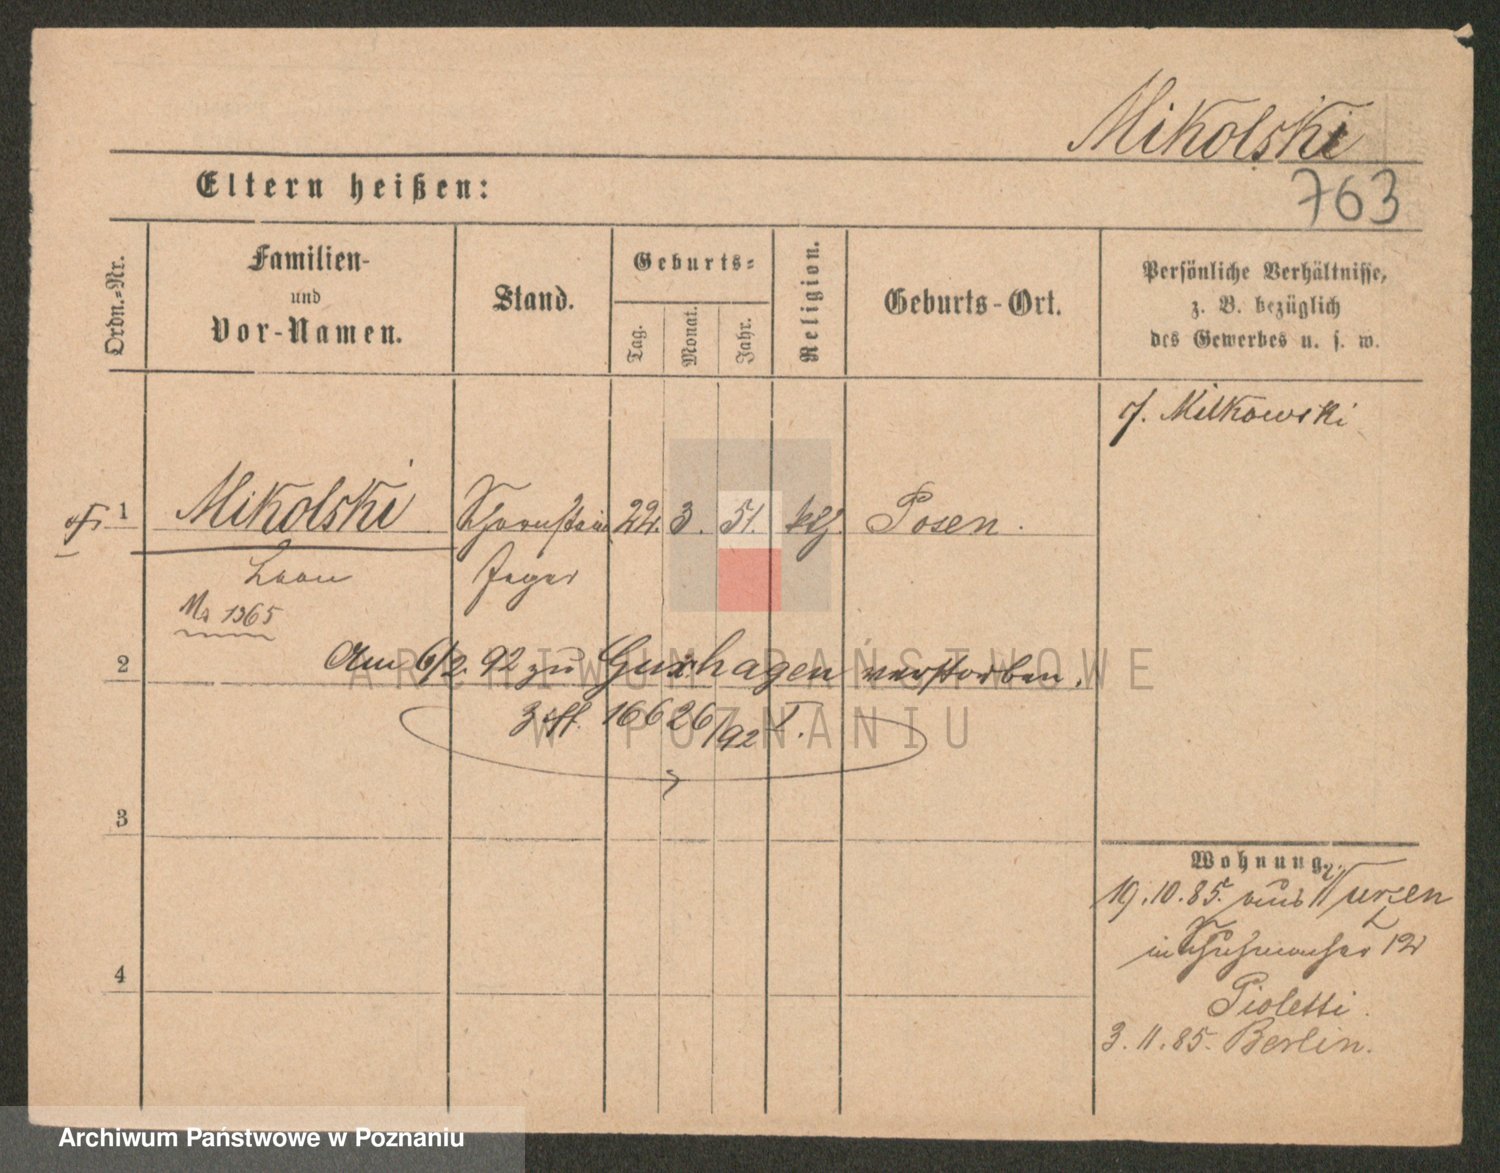 Mikolski
763
Eltern heißen:
Ordn.-Nr.
Familien-
und
Vor-Namen.
Stand.
Geburts-
Tag.
Monat.
Jahr.
Religion.
Geburts-Ort.
Persönliche Verhältnisse,
z. B. bezüglich
des Gewerbes u. s. w.
cf. Milkowski
1 Mikolski Schornstein 22. 3. 51. kth. Posen.
Leon feger
No 1365
2 Am 6/2. 92 zu Guxhagen verstorben.
16626/92 I.
3
4
Wohnung.
19.10.85. aus Wurzen
in Schuhmacher 12
Pioletti.
3.11.85. Berlin.
ARCHIWUM PAŃSTWOWE
W POZNANIU
Archiwum Państwowe w Poznaniu